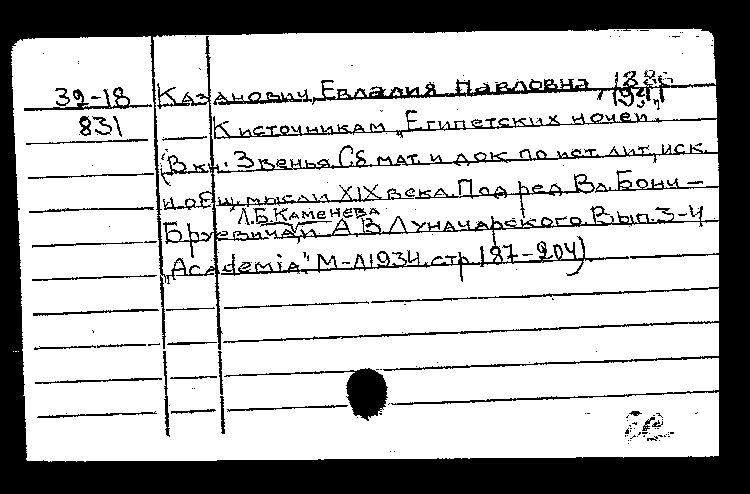 39-18 Казанович, Евлалия Павловна, 1886
1941
831 К источникам „Египетских ночей".
(В кн: Звенья. Сб. мат. и док. по ист. лит., иск.
и общ. мысли XIX века. Под ред. Вл. Бонч-
Л.Б. Каменева
Бруевича, и А.В. Луначарского. Вып. 3-4
„Academia". М-Л 1934. стр. 187-204).